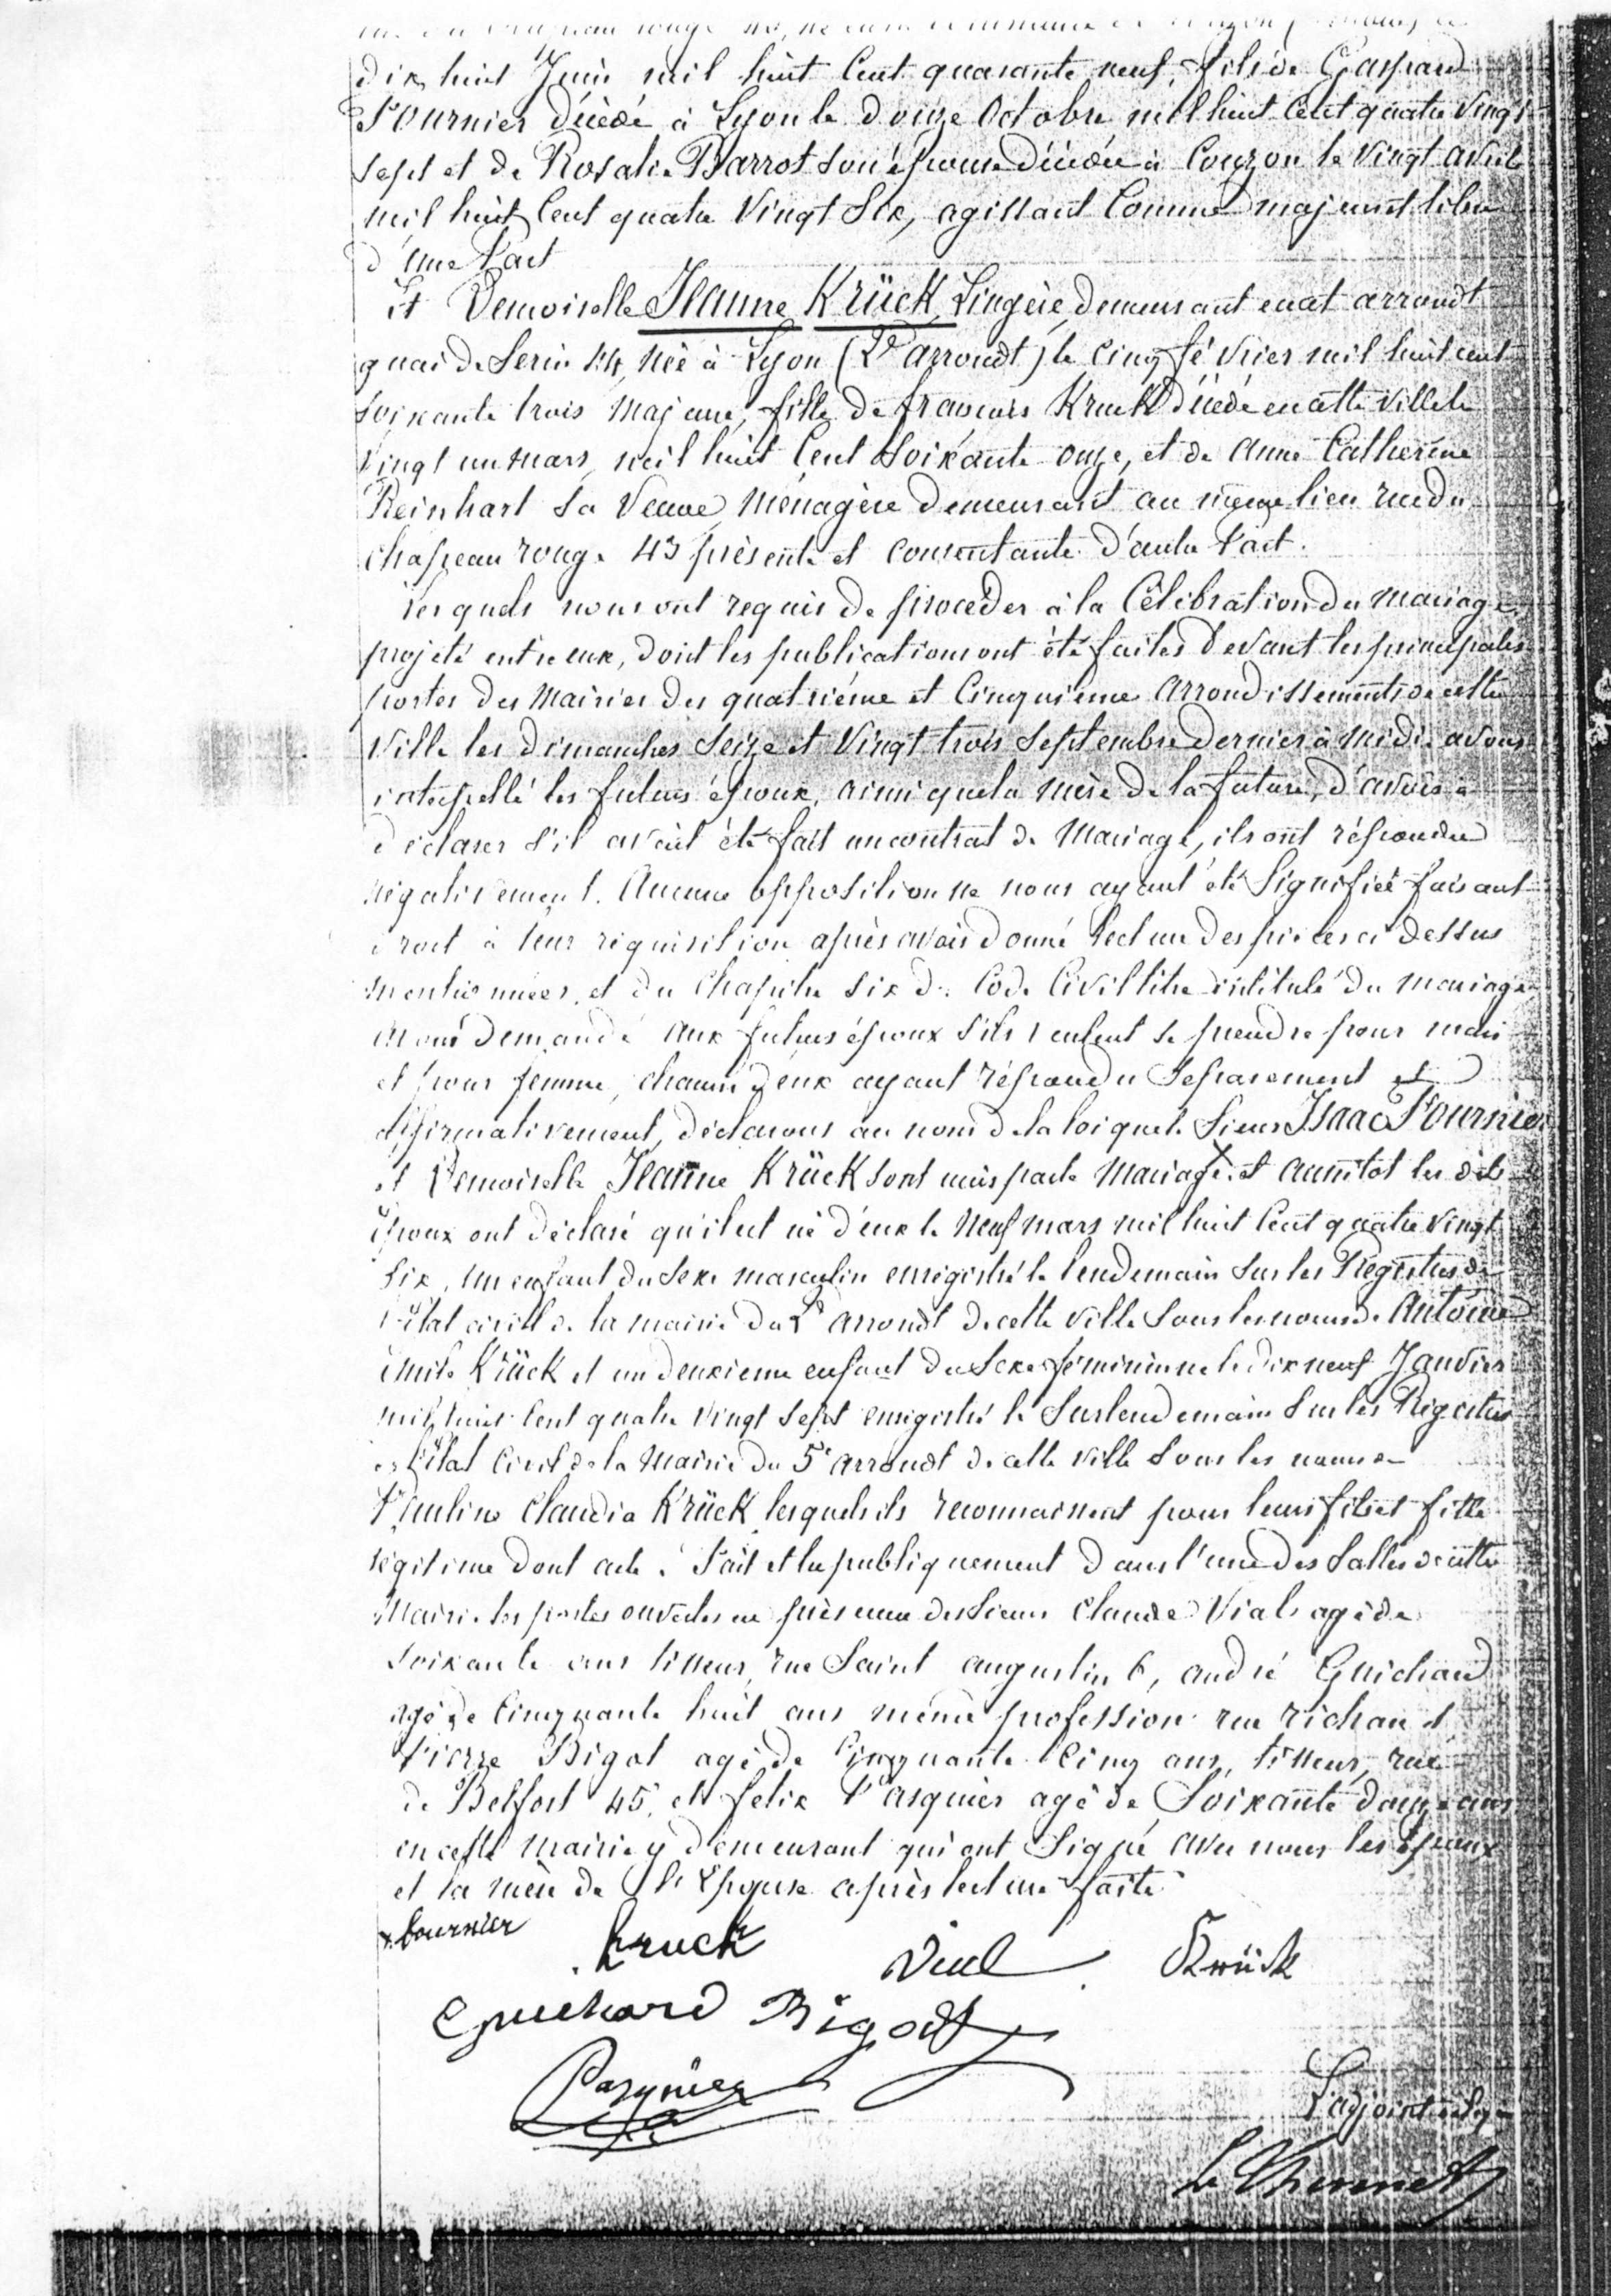 dix huit Juin mil huit Cent quarante neuf, fils de Gaspard
Fournier décédé à Lyon le douze Octobre mil huit Cent quatre Vingt
sept et de Rosalie Barrot son épouse Décédée à Couzon le Vingt avril
mil huit Cent quatre Vingt Six, agissant Comme majeur et libre
d'une Part
Et Demoiselle Jeanne Krück, Lingère, demeurant en cet arrondt
quai de Serin 14, née à Lyon (2e arrondt) le Cinq février mil huit cent
soixante trois majeure, fille de françois Kruck Décédé en cette Ville le
Vingt un mars mil huit Cent Soixante onze, et de Anne Catherine
Reinhart Sa Veuve, Ménagère Demeurant au même lieu rue du
Chapeau rouge 43 présente et Consentante d'autre Part.
Lesquels nous ont requis de procéder à la Célébration du Mariage
projeté entre eux, dont les publications ont été faites Devant les principales
portes des Mairies des quatrième et Cinquième Arrondissements de cette
Ville les Dimanches Seize et Vingt trois Septembre Dernier à midi. avons
interpellé les futurs époux, ainsi que la mère de la future, d'avoir à
déclarer s'il avait été fait un contrat de Mariage, ils ont répondu
négativement. Aucune opposition ne nous ayant été Signifiée faisant
droit à leur réquisition après avoir donné Lecture des pièces ci dessus
mentionnées, et du Chapitre Six du Code Civil titre intitulé du mariage
avons demandé aux futurs époux S'ils veulent se prendre pour mari
et pour femme, chacun d'eux ayant répondu Séparément et
affirmativement, déclarons au nom de la loi que le Sieur Isaac Fournier
et Demoiselle Jeanne Krück sont unis par le Mariage. et aussitôt les dits
époux ont déclaré qu'il est né d'eux le Neuf mars mil huit Cent quatre Vingt
Six, un enfant du Sexe masculin enregistré le lendemain Sur les Registres de
l'état civil de la mairie du 2e arrondt de cette Ville Sous les noms de Antoine
Emile Krück et un deuxième enfant du Sexe féminin né le dix neuf Janvier
mil huit Cent quatre Vingt Sept enregistré le Surlendemain Sur les Registres
de l'état Civil de la Mairie du 5e arrondt de cette Ville Sous les noms de
Pauline Claudia Krück lesquels ils reconnaissent pour leurs fils et fille
légitime Dont acte. Fait et lu publiquement Dans l'une des Salles de cette
Mairie les portes ouvertes en présence des Sieurs Claude Vial agé de
Soixante ans tisseur, rue Saint augustin 6, andré Guichard
agé de Cinquante huit ans même profession rue richan
Pierre Bigot agé de Cinquante Cinq ans, tisseur, rue
de Belfort 45, et felix Pasquier agé de Soixante douze ans
en cette mairie y demeurant qui ont Signé avec nous les époux
et la mère de l'Epouse après lecture faite
x fournier Kruck Vial Krück
Guichard Bigot
Pasquier
L'adjoint